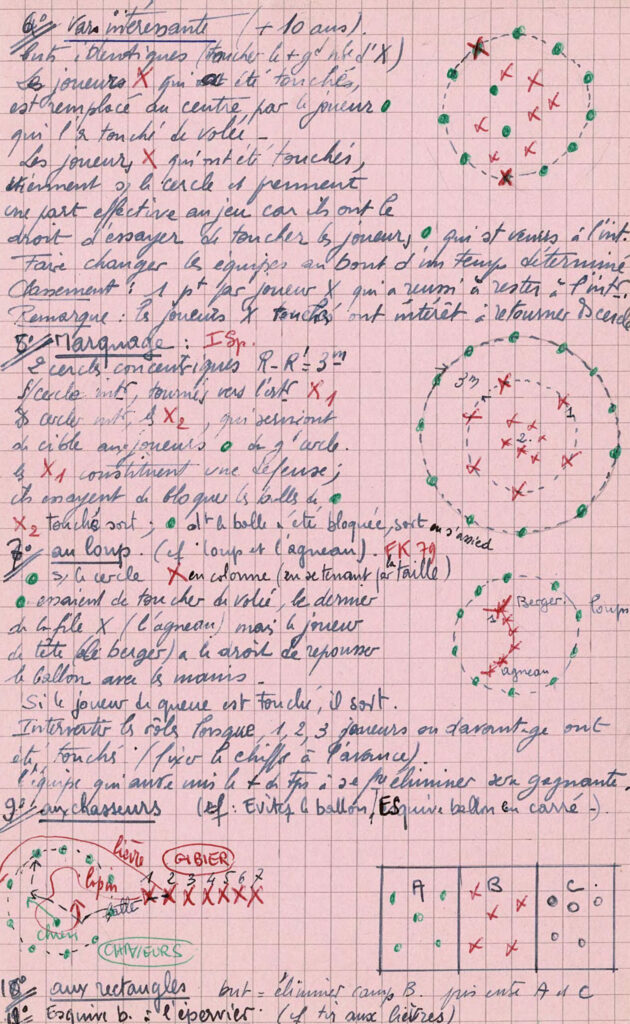 6° Var. intéressante (+ 10 ans).
buts identiques (toucher le + gd nbre d'X)
Les joueurs X qui ont été touchés,
est remplacé au centre par le joueur
qui l'a touché de volée -
Les joueurs X qui ont été touchés,
viennent s/ le cercle et prennent
une part effective au jeu car ils ont le
droit d'essayer de toucher les joueurs qui st venus à l'int.
Faire changer les équipes au bout d'un temps déterminé
Classement : 1 pt par joueur X qui a réussi à rester à l'intr.
Remarque : les joueurs X touchés ont intérêt à retourner ds cercle
8° Marquage : ISp.
2 cercles concentriques R - R' = 3m
s/ cercle intr, tournés vers l'extr X1
ds cercle intr, les X2, qui serviront
de cible aux joueurs du gd cercle.
les X1 constituent une défense ;
ils essayent de bloquer les balles de
X2 touché sort ; dt la balle a été bloquée, sort ou s'assied
3m
2.
7° au loup. (cf. loup et l'agneau). FK 79
s/ le cercle X en colonne (en se tenant par la taille)
essaient de toucher de volée, le dernier
de la file X (l'agneau) mais le joueur
de tête (le berger) a le droit de repousser
le ballon avec les mains -
Berger
1
loups
agneau
Si le joueur de queue est touché, il sort.
Intervertir les rôles lorsque 1, 2, 3 joueurs ou davantage ont
été touchés (fixer le chiffre à l'avance).
l'équipe qui aura mis le + de tps à se fre éliminer sera gagnante.
9° aux chasseurs (cf : Evitez le ballon, ESquive ballon en carré -).
lièvre GIBIER
lapin 1 2 3 4 5 6 7
chien
CHASSEURS
A B C
10° aux rectangles but = éliminer camp B pris entre A et C
11° Esquive b. : l'épervier (cf tir aux lièvres)